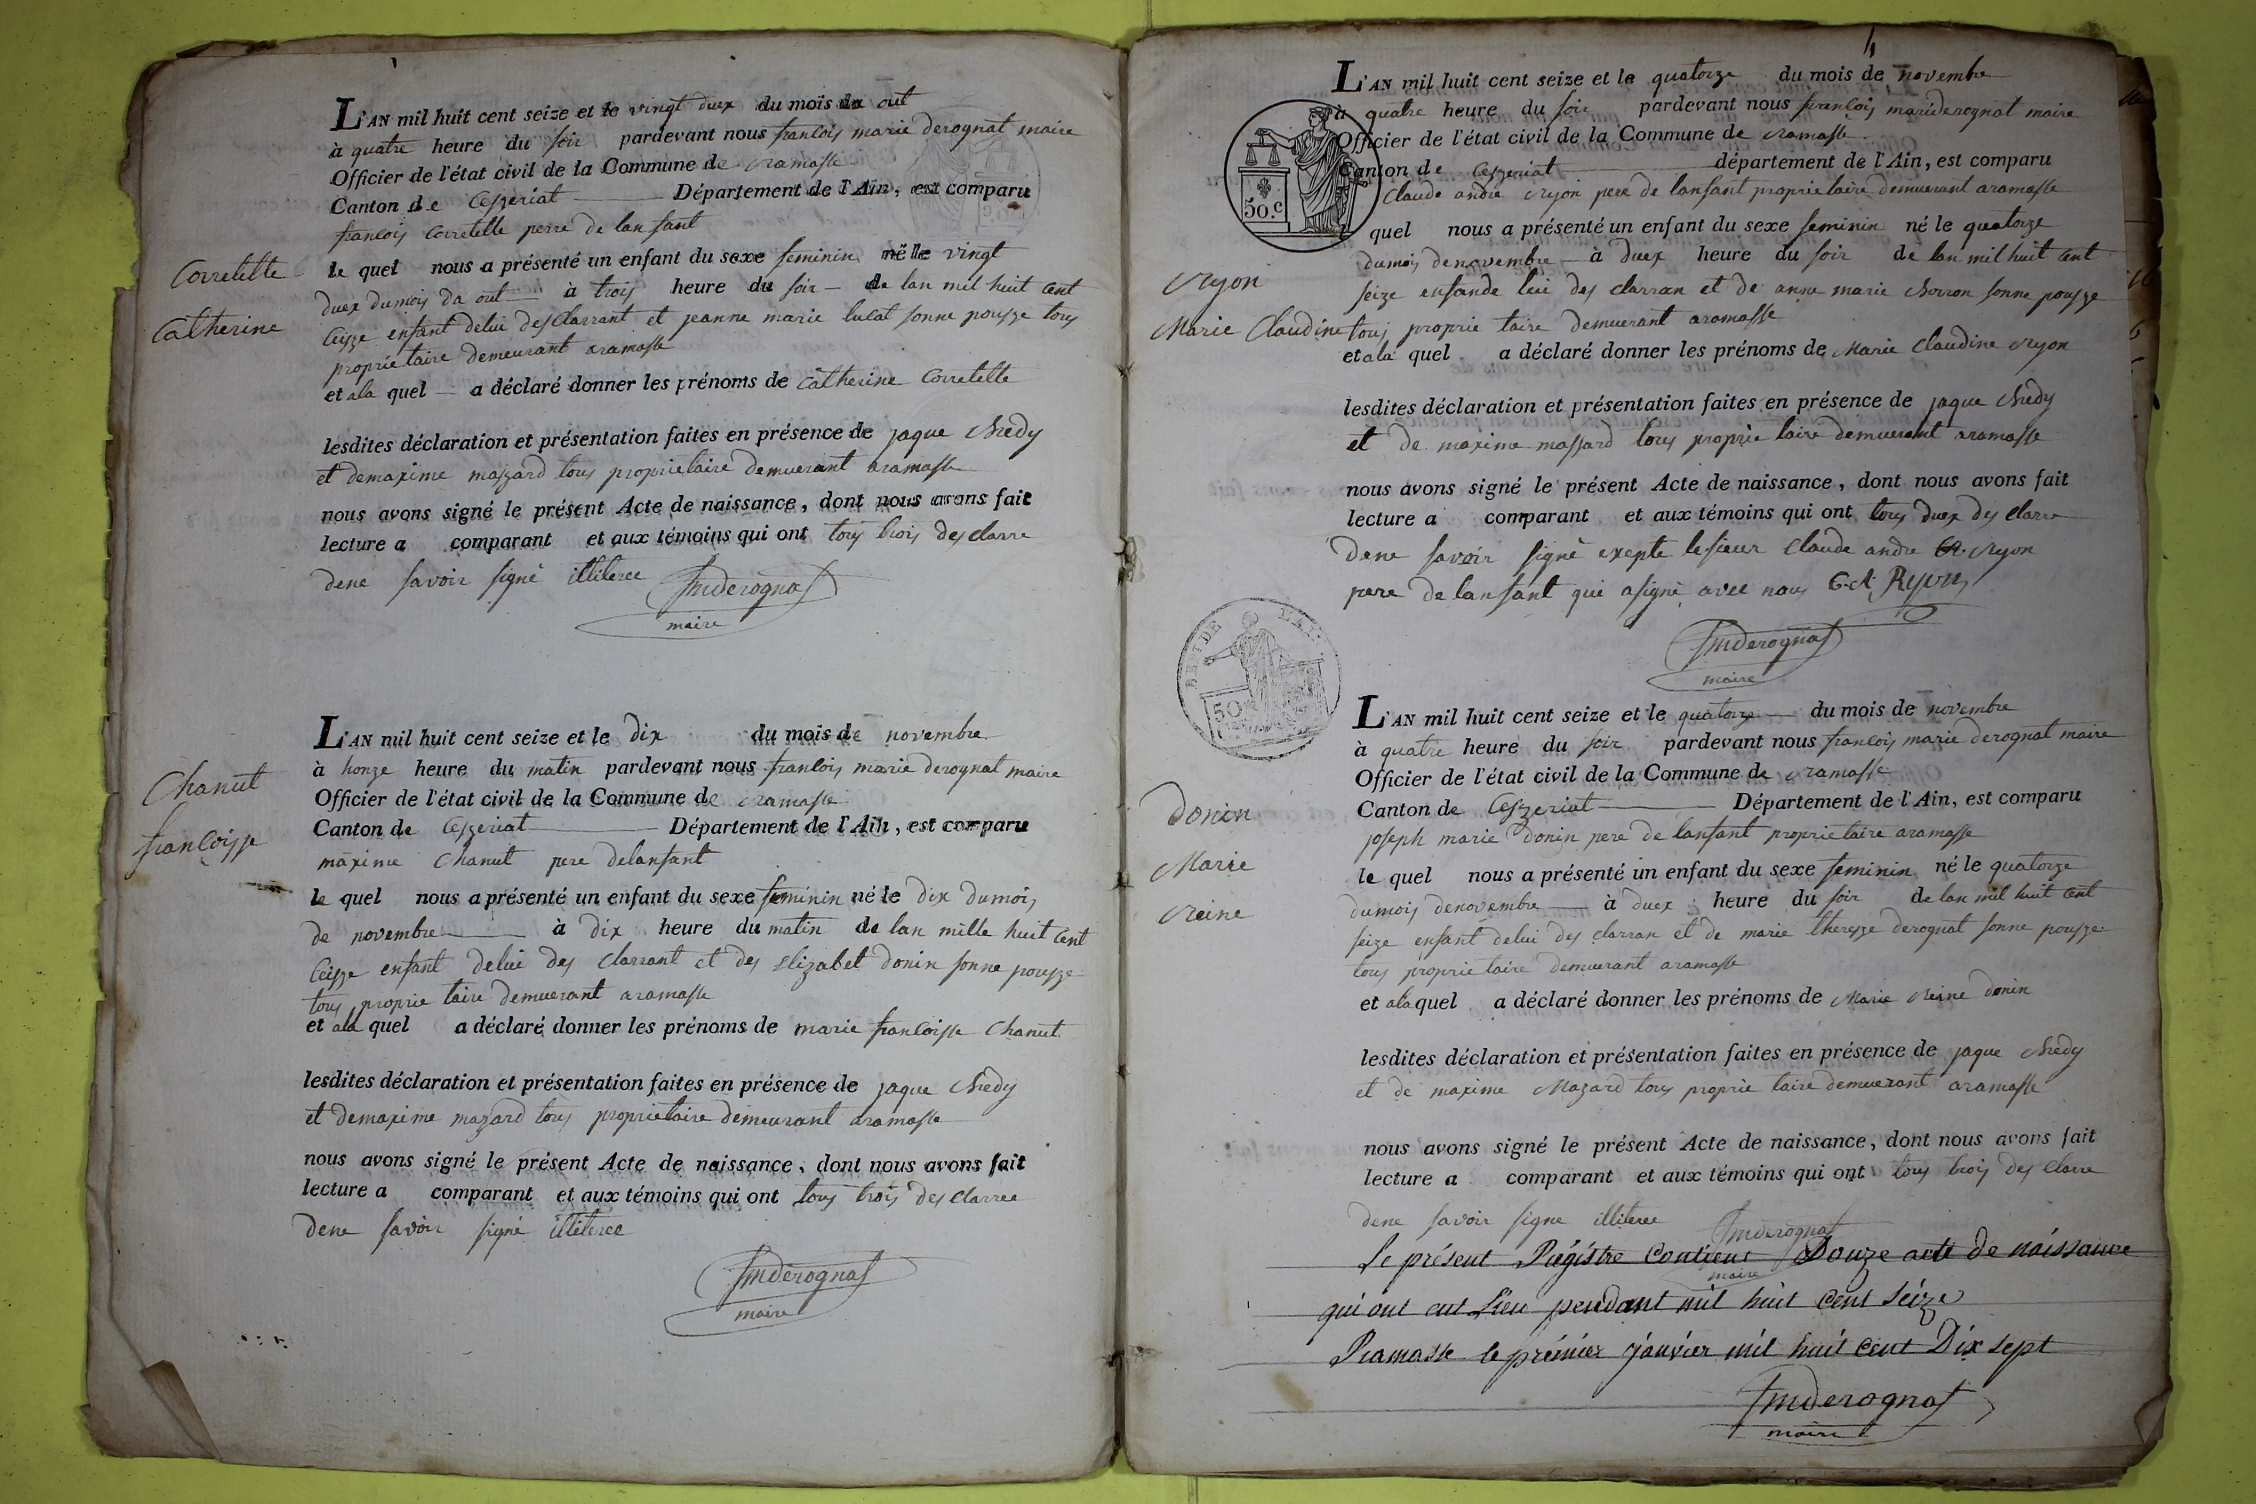 L'AN mil huit cent seize et le vingt duex du mois da out
à quatre heure du soir pardevant nous francois marie derognat maire
Officier de l'état civil de la Commune de ramasse
Canton de Ceszeriat Département de l'Ain, est comparu
francois Corretelle perre de lan fant
le quel nous a présenté un enfant du sexe feminin né le vingt
Corretelle
duex du mois da out à trois heure du soir de lan mil huit cent
Catherine
seizze enfant de lui des Clarrant et jeanne marie lucat sonne pousze tous
proprie taire demeurant aramasse
et ala quel a déclaré donner les prénoms de Catherine Corretelle
lesdites déclaration et présentation faites en présence de jaque Chedy
et demaxime maszard tous proprietaire demuerant aramasse
nous avons signé le présent Acte de naissance, dont nous avons fait
lecture a comparant et aux témoins qui ont tous trois des clarre
dene savoir signé illiteree fmderognat
maire
L'AN mil huit cent seize et le dix du mois de novembre
à honze heure du matin pardevant nous francois marie derognat maire
Chanut
Officier de l'état civil de la Commune de ramasse
Canton de Ceszeriat Département de l'Ain, est comparu
francoisse
maxime Chanut pere delanfant
le quel nous a présenté un enfant du sexe feminin né le dix dumois
de novembre à dix heure du matin de lan mille huit Cent
Ceisze enfant delui des Clarrant et des Elizabet donin sonne pousze
tous proprie taire demuerant aramasse
et ala quel a déclaré donner les prénoms de marie francoisse Chanut
lesdites déclaration et présentation faites en présence de jaque Chedy
et demaxime mazard tous proprietaire demeurant aramasse
nous avons signé le présent Acte de naissance, dont nous avons fait
lecture a comparant et aux témoins qui ont tous trois des clarree
dene savoir signé illiteree
fmderognat
maire
L'AN mil huit cent seize et le quatorze du mois de novembre
à quatre heure du soir pardevant nous francois mariederognat maire
Officier de l'état civil de la Commune de ramasse
Canton de Ceszeriat département de l'Ain, est comparu
Claude andre ryon pere de lanfant proprietaire demuerant aramasse
50.c
quel nous a présenté un enfant du sexe feminin né le quatorze
dumois denovembre à duex heure du soir de lan mil huit cent
Ryon
seize enfande lui des clarran et de anne marie Chorron sonne pousze
Marie Claudine
tous proprie taire demuerant aramasse
et ala quel a déclaré donner les prénoms de Marie Claudine ryon
lesdites déclaration et présentation faites en présence de jaque Chedy
et de maxime massard tous proprie taire demuerant aramasse
nous avons signé le présent Acte de naissance, dont nous avons fait
lecture a comparant et aux témoins qui ont tous duex des clarre
dene savoir signé exepte lesieur Claude andre ryon
pere de lanfant qui asigné avec nous C.A. Ryon
fmderognat
maire
50
L'AN mil huit cent seize et le quatorze du mois de novembre
à quatre heure du soir pardevant nous francois marie derognat maire
Officier de l'état civil de la Commune de ramasse
Canton de Ceszeriat Département de l'Ain, est comparu
Donin
joseph marie donin pere de lanfant proprietaire aramasse
Marie
le quel nous a présenté un enfant du sexe feminin né le quatorze
Reine
dumois denovembre à duex heure du soir de lan mil huit cent
seize enfant delui des clarran et de marie theresze derognat sonne pousze
tous proprie taire demuerant aramasse
et ala quel a déclaré donner les prénoms de Marie reine donin
lesdites déclaration et présentation faites en présence de jaque Chedy
et de maxime Mazard tous proprie taire demuerant aramasse
nous avons signé le présent Acte de naissance, dont nous avons fait
lecture a comparant et aux témoins qui ont tous trois des Clarre
dene savoir signe illiteree fmderognat
maire
Le présent Régistre Contient Douze acte de naissance
qui ont eut Lieu pendant mil huit Cent Séize
Ramasse le prémiér janvier mil huit cent Dix sept
fmderognat
maire